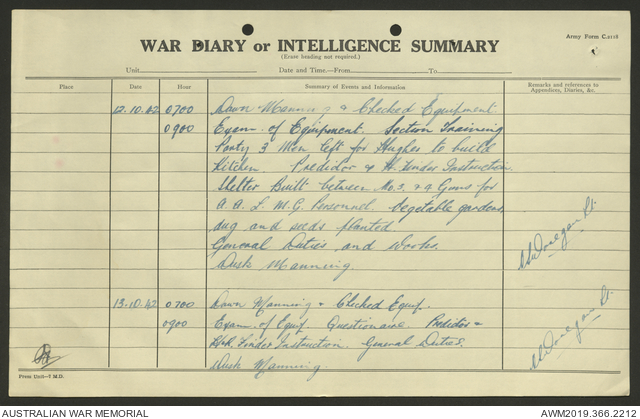 Army Form C.2118
WAR DIARY or INTELLIGENCE SUMMARY
(Erase heading not required.)
Unit Date and Time—From To
Place Date Hour Summary of Events and Information Remarks and references to Appendices, Diaries, &c.
12.10.42 0700 Dawn Manning & Checked Equipment
0900 Exam. of Equipment. Section Training
Party 3 Men left for Hughes to build
Kitchen. Predidor & H. Finder Instruction.
Shelter Built between No. 3. & 4 Guns for
A. A. L. M. G. Personnel. Vegetable gardens
dug and seeds planted.
General Duties and Works.
Dusk Manning.
Donegan Lt.
13.10.42 0700 Dawn Manning & Checked Equip.
0900 Exam. of Equip. Questionaire. Predidor &
Finder Instruction. General Duties.
Dusk Manning.
Donegan Lt.
Press Unit—7 M.D.
AUSTRALIAN WAR MEMORIAL AWM2019.366.2212